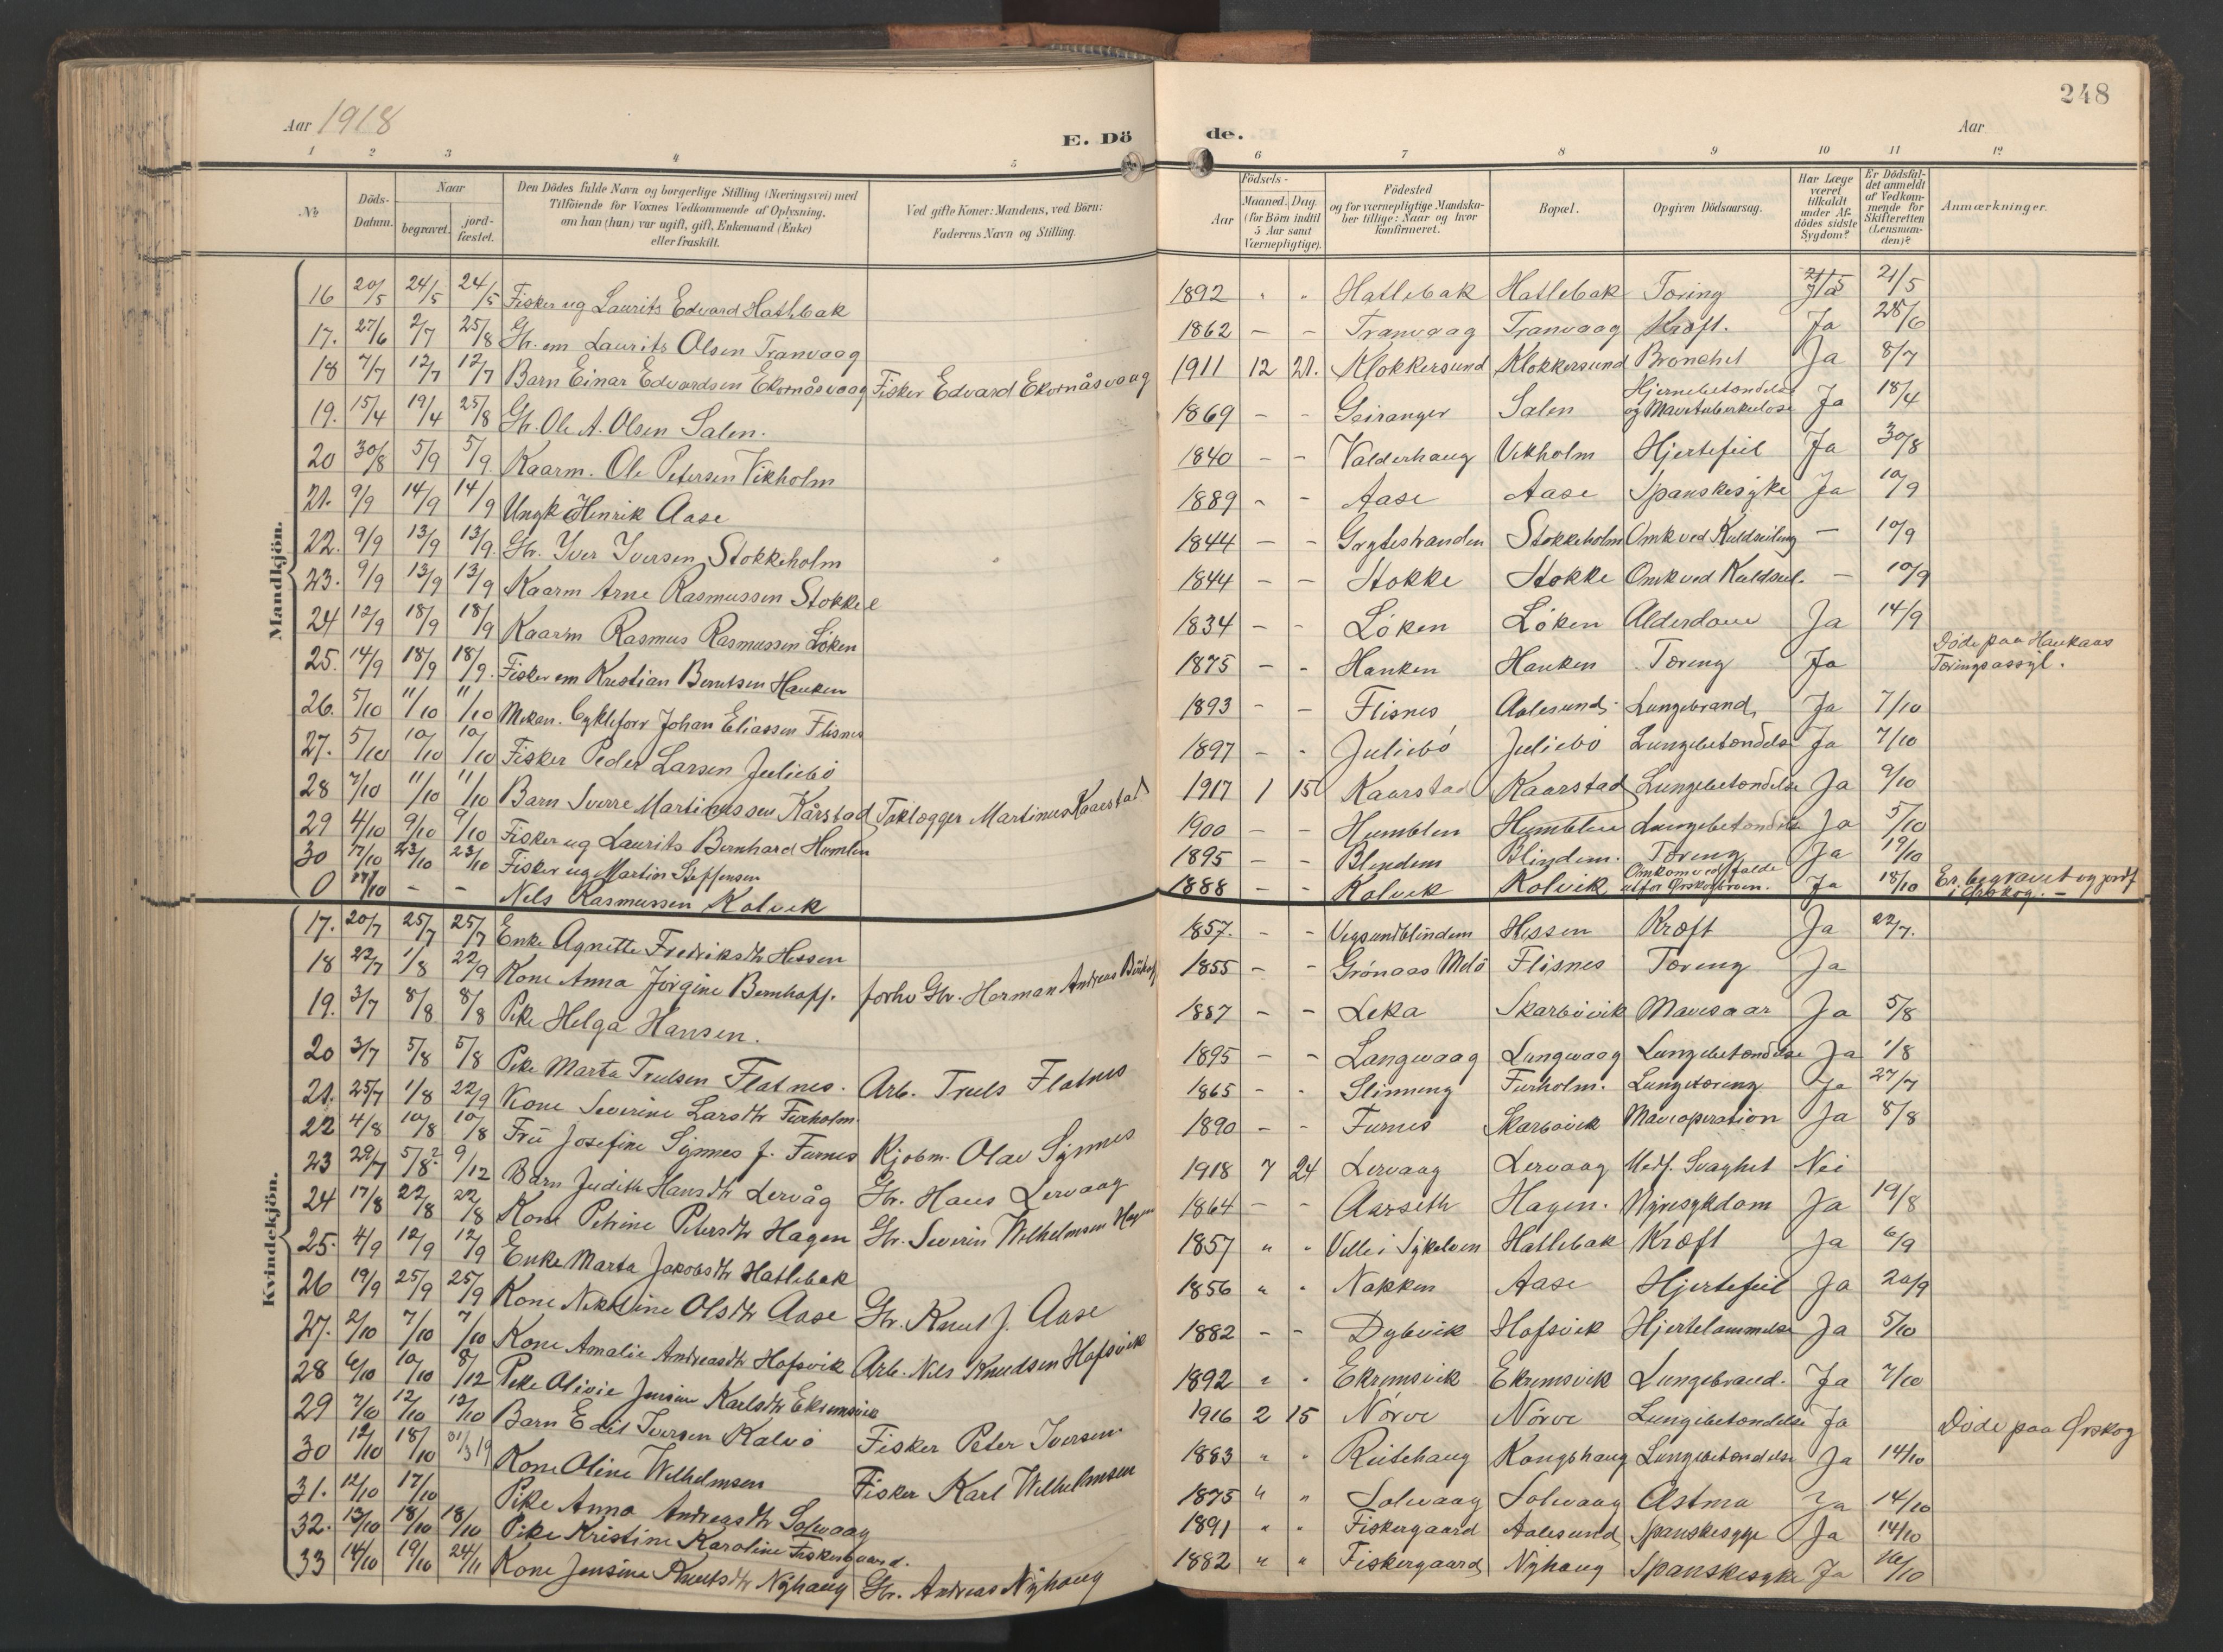 248
Aar 1918
E. Dö
de.
Aar
1 2 3 4 5 6 7 8 9 10 11 12
No
Döds-Datum.
Naar
begravet.
jord-fæstet.
Den Dödes fulde Navn og borgerlige Stilling (Næringsvei) med
Tilföiende for Voxnes Vedkommende af Oplysning,
om han (hun) var ugift, gift, Enkemand (Enke)
eller fraskilt.
Ved gifte Koner: Mandens, ved Börn:
Faderens Navn og Stilling.
Födsels-
Aar
Maaned. Dag.
(for Börn indtil
5 Aar samt
Værnepligtige).
Födested
og for værnepligtige Mandska-
ber tillige: Naar og hvor
konfirmeret.
Bopæl.
Opgiven Dödsaarsag.
Har Læge
været
tilkaldt
under Af-
dödes sidste
Sygdom?
Er Dödsfal-
det anmeldt
af Vedkom-
mende for
Skifteretten
(Lensman-
den)?
Anmærkninger.
Mandkjön.
16 20/5 24/5 24/5 Fisker ug Laurits Edvard Hatlebak 1892 " " Hatlebak Hatlebak Tæring Ja 21/5
17. 27/6 2/7 25/8 Gbr. em Laurits Olsen Tranvaag 1862 – – Tranvaag Tranvaag Kræft. Ja 28/6
18 7/7 12/7 12/7 Barn Einar Edvardsen Ekornåsvaag Fisker Edvard Ekornåsvaag 1911 12 21. Klokkersund Klokkersund Bronchit Ja 8/7
19. 15/4 19/4 25/8 Gbr. Ole A. Olsen Salen. 1869 – – Geiranger Salen Hjernebetændelse og Mavetuberkulose Ja 18/4
20 30/8 5/9 5/9 Kaarm. Ole Petersen Vikholm 1840 – – Valderhaug Vikholm Hjertefeil Ja 30/8
21. 9/9 14/9 14/9 Ungk Henrik Aase 1889 – – Aase Aase Spanskesyke Ja 10/9
22. 9/9 13/9 13/9 Gbr. Iver Iversen Stokkeholm 1844 – – Grytestranden Stokkeholm Omk ved Kuldseiling – 10/9
23. 9/9 13/9 13/9 Kaarm Arne Rasmussen Stokke 1844 – – Stokke Stokke Omk ved Kuldseil. – 10/9
24 12/9 18/9 18/9 Kaarm Rasmus Rasmussen Löken 1834 – – Löken Löken Alderdom Ja 14/9
25. 14/9 18/9 18/9. Fisker em Kristian Berntsen Hauken 1875 – – Hauken Hauken Tæring Ja Döde paa Haukaas Tæringsassyl.
26. 5/10 11/10 11/10 Mekan. Cykleforr Johan Eliassen Flisnes 1893 – – Flisnes Aalesund Lungebrand Ja 7/10
27. 5/10 10/10 10/10 Fisker Peder Larsen Juliebö 1897 – – Juliebö Juliebö Lungebetændelse Ja 7/10
28 7/10 11/10 11/10 Barn Sverre Martinussen Kårstad Taktægger Martinus Kaarstad 1917 1 15 Kaarstad Kaarstad Lungebetændelse Ja 9/10
29 4/10 9/10 9/10 Fisker ug Laurits Bernhard Humlen 1900 – – Humblen Humblen Lungebetændelse Ja 5/10
30 17/10 23/10 23/10 Fisker ug Martin Steffensen 1895 – – Blindem Blindem. Tæring Ja 19/10
0 17/10 – – Nils Rasmussen Kolvik 1888 – – Kolvik Kolvik Omkom ved falde utfor Ørskogbroen. Ja 18/10 Er begravet og jordf i Ørskog. –
Kvindekjön.
17. 20/7 25/7 25/7 Enke Agnette Fredriksdtr Hessen 1857. – – Vegsundblindem Hessen Kræft Ja 22/7.
18 22/7 1/8 22/9 Kone Anna Jörgine Bernhoff. forhv Gbr. Herman Andreas 1855 – – Grönaas Flisnes Tæring Ja
19. 3/7 8/8 8/8 Pike Helga Hansen. 1887 – – Leka Skarbövik Mavesaar Ja 5/8
20 3/7 5/8 5/8 Pike Marta Trulsen Flatnes. Arb. Truls Flatnes 1895 – – Langvaag Langvaag Lungebetændelse Ja 1/8
21. 25/7 1/8 22/9 Kone Severine Larsdtr Furholm 1865 – – Slinning Furholm. Lungetæring Ja 27/7
22 4/8 10/8 10/8 Fru Josefine Synnes f. Furnes Kjöbm. Olav Synnes 1890 – – Furnes Skarbövik Maveoperation Ja 8/8
23 29/7 5/8? 9/12 Barn Judith Hansdtr Lervåg Gbr. Hans Lervaag 1918 7 24 Lervaag Lervaag Medf. Svaghet Nei
24 17/8 22/8 22/8 Kone Petrine Petersdtr Hagen Gbr. Severin Wilhelmsen Hagen 1864 – – Aarseth Hagen. Nyresykdom Ja 19/8
25. 4/9 12/9 12/9 Enke Marta Jakobsdtr Hatlebak 1857 " " Velle i Sykelven Hatlebak Kræft Ja 6/9
26 19/9 25/9 25/9 Kone Nikoline Olsdtr Aase Gbr. Knut J. Aase 1856 " " Nakken Aase Hjertefeil Ja 20/9
27. 2/10 7/10 7/10 Kone Amalie Andreasdtr Hofsvik Arb. Nils Knudsen Hofsvik 1882 – – Dybvik Hofsvik Hjertelammelse Ja 5/10
28 6/10 10/10 8/12 Pike Olivie Jensine Karlsdtr Ekremsvik 1892 " " Ekremsvik Ekremsvik Lungebrand. Ja 7/10
29 7/10 12/10 12/10 Barn Edit Iversen Kalvö Fisker Peter Iversen. 1916 2 15 Nörve Nörve Lungebetændelse Ja Döde paa Ørskog
30 12/10 18/10 31/3 19 Kone Oline Wilhelmsen Fisker Karl Wilhelmsen 1883 " " Reitehaug Kongshaug Lungebetændelse Ja 14/10
31. 12/10 17/10 Pike Anna Andreasdtr Solvaag 1875 " " Solvaag Solvaag Astma Ja 14/10
32. 13/10 18/10 18/10 Pike Kristine Karoline Fiskergaard. 1891 " " Fiskergaard Aalesund Spanskesyge Ja 14/10
33 14/10 19/10 24/11 Kone Jensine Knutsdtr Nyhaug Gbr. Andreas Nyhaug 1882 " " Fiskergaard Nyhaug Spanskesyke Ja 16/10